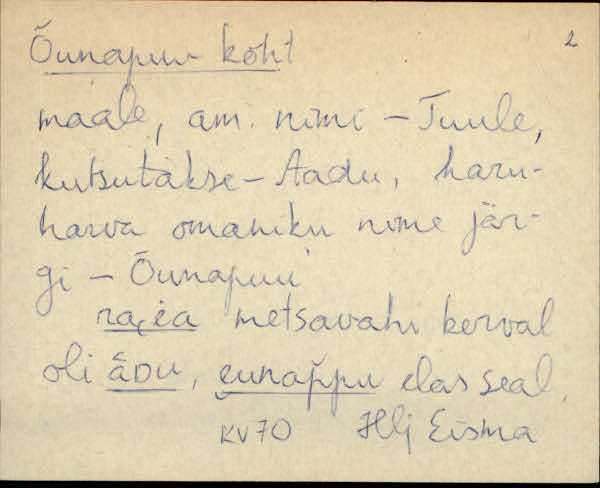 Õunapuu koht 2
maale, am. nimi – Tuule,
kutsutakse – Aadu, haru-
harva omaniku nime jär-
gi – Õunapuu
metsavahi kõrval
oli āᴅu, elas seal.
KV70 Hlj Eisma